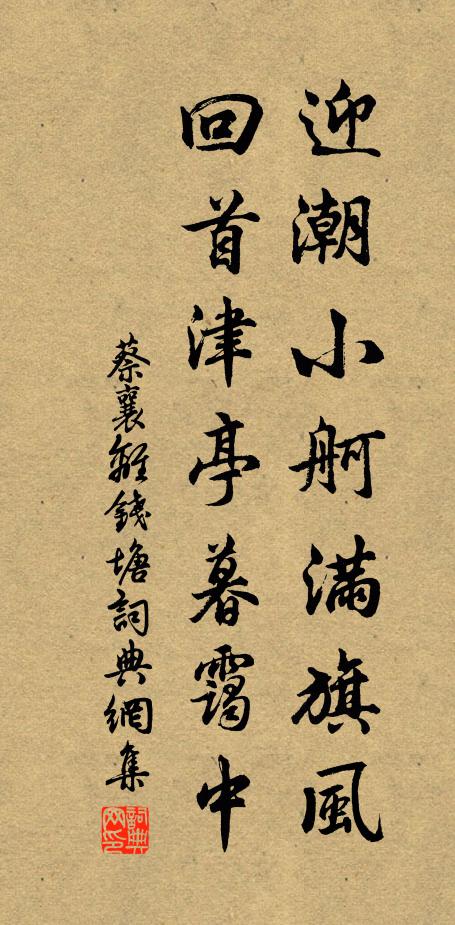 迎潮小舸滿旗風
回首津亭暮靄中
蔡襄離錢塘詞典網集
詞典網印